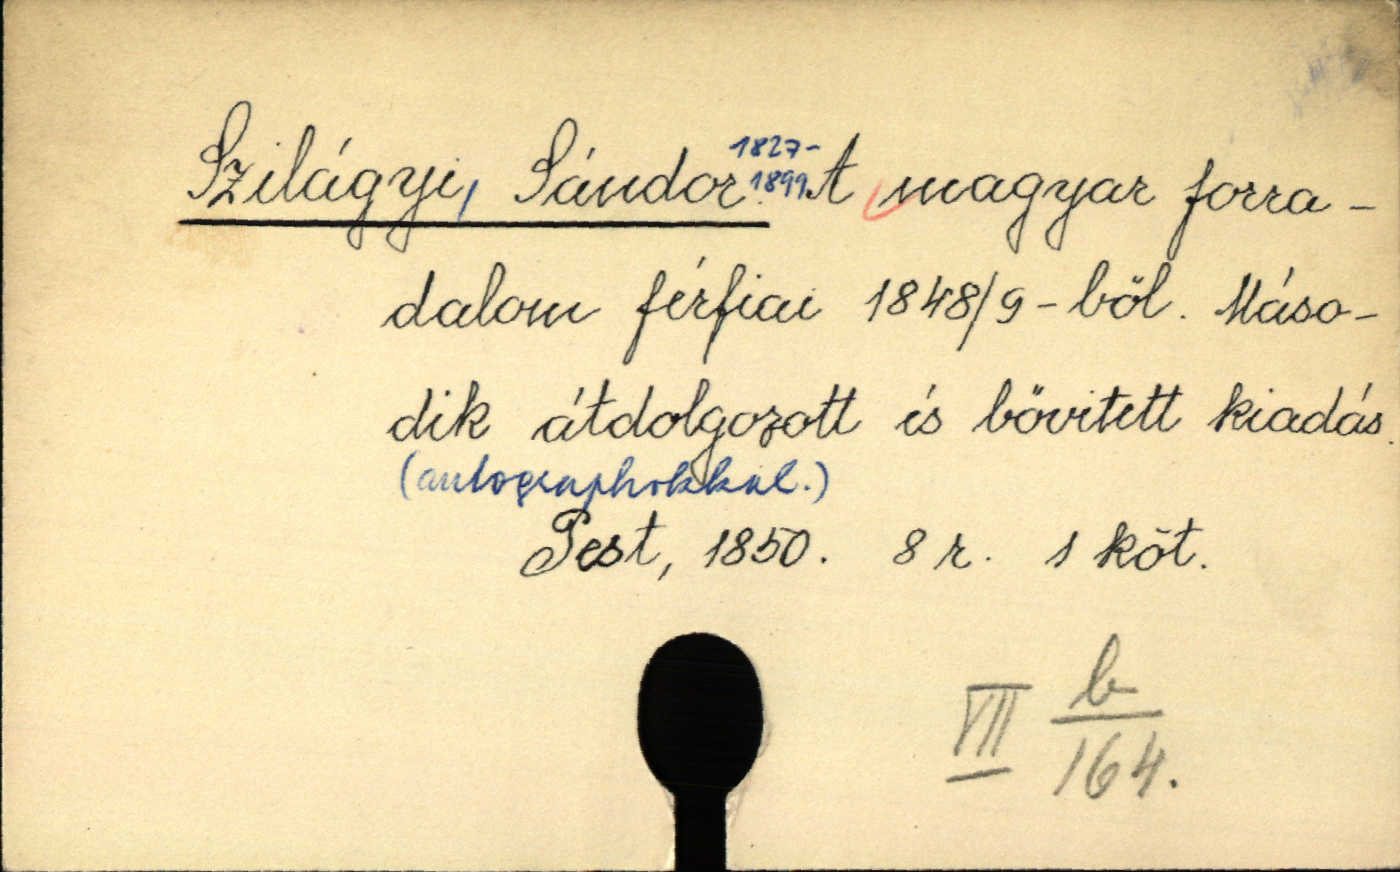 Szilágyi, Sándor. 1827-1899. A magyar forra-
dalom férfiai 1848/9-ből. Máso-
dik átdolgozott és bővitett kiadás.
(autographokkal.)
Pest, 1850. 8 r. 1 köt.
VII b/164.